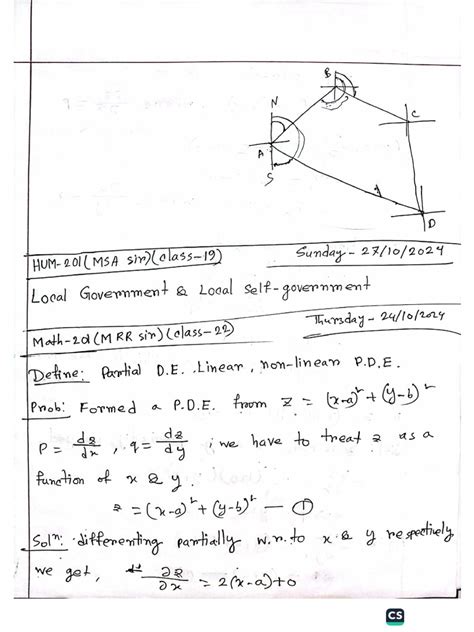 B
N
C
A
S
D
HUM-201(MSA sir)(class-19)
Sunday - 27/10/2024
Local Government & Local self-government
Math-201(MRR sir)(class-22)
Thursday - 24/10/2024
Define: Partial D.E. Linear, non-linear P.D.E.
Prob: Formed a P.D.E. from z = (x-a)² + (y-b)²
P = dz/dx, q = dz/dy ; we have to treat z as a
function of x & y.
z = (x-a)² + (y-b)² — ①
Solⁿ: differenting partially w.r.to x & y respectively
we get, ∂z/∂x = 2(x-a)+0
CS